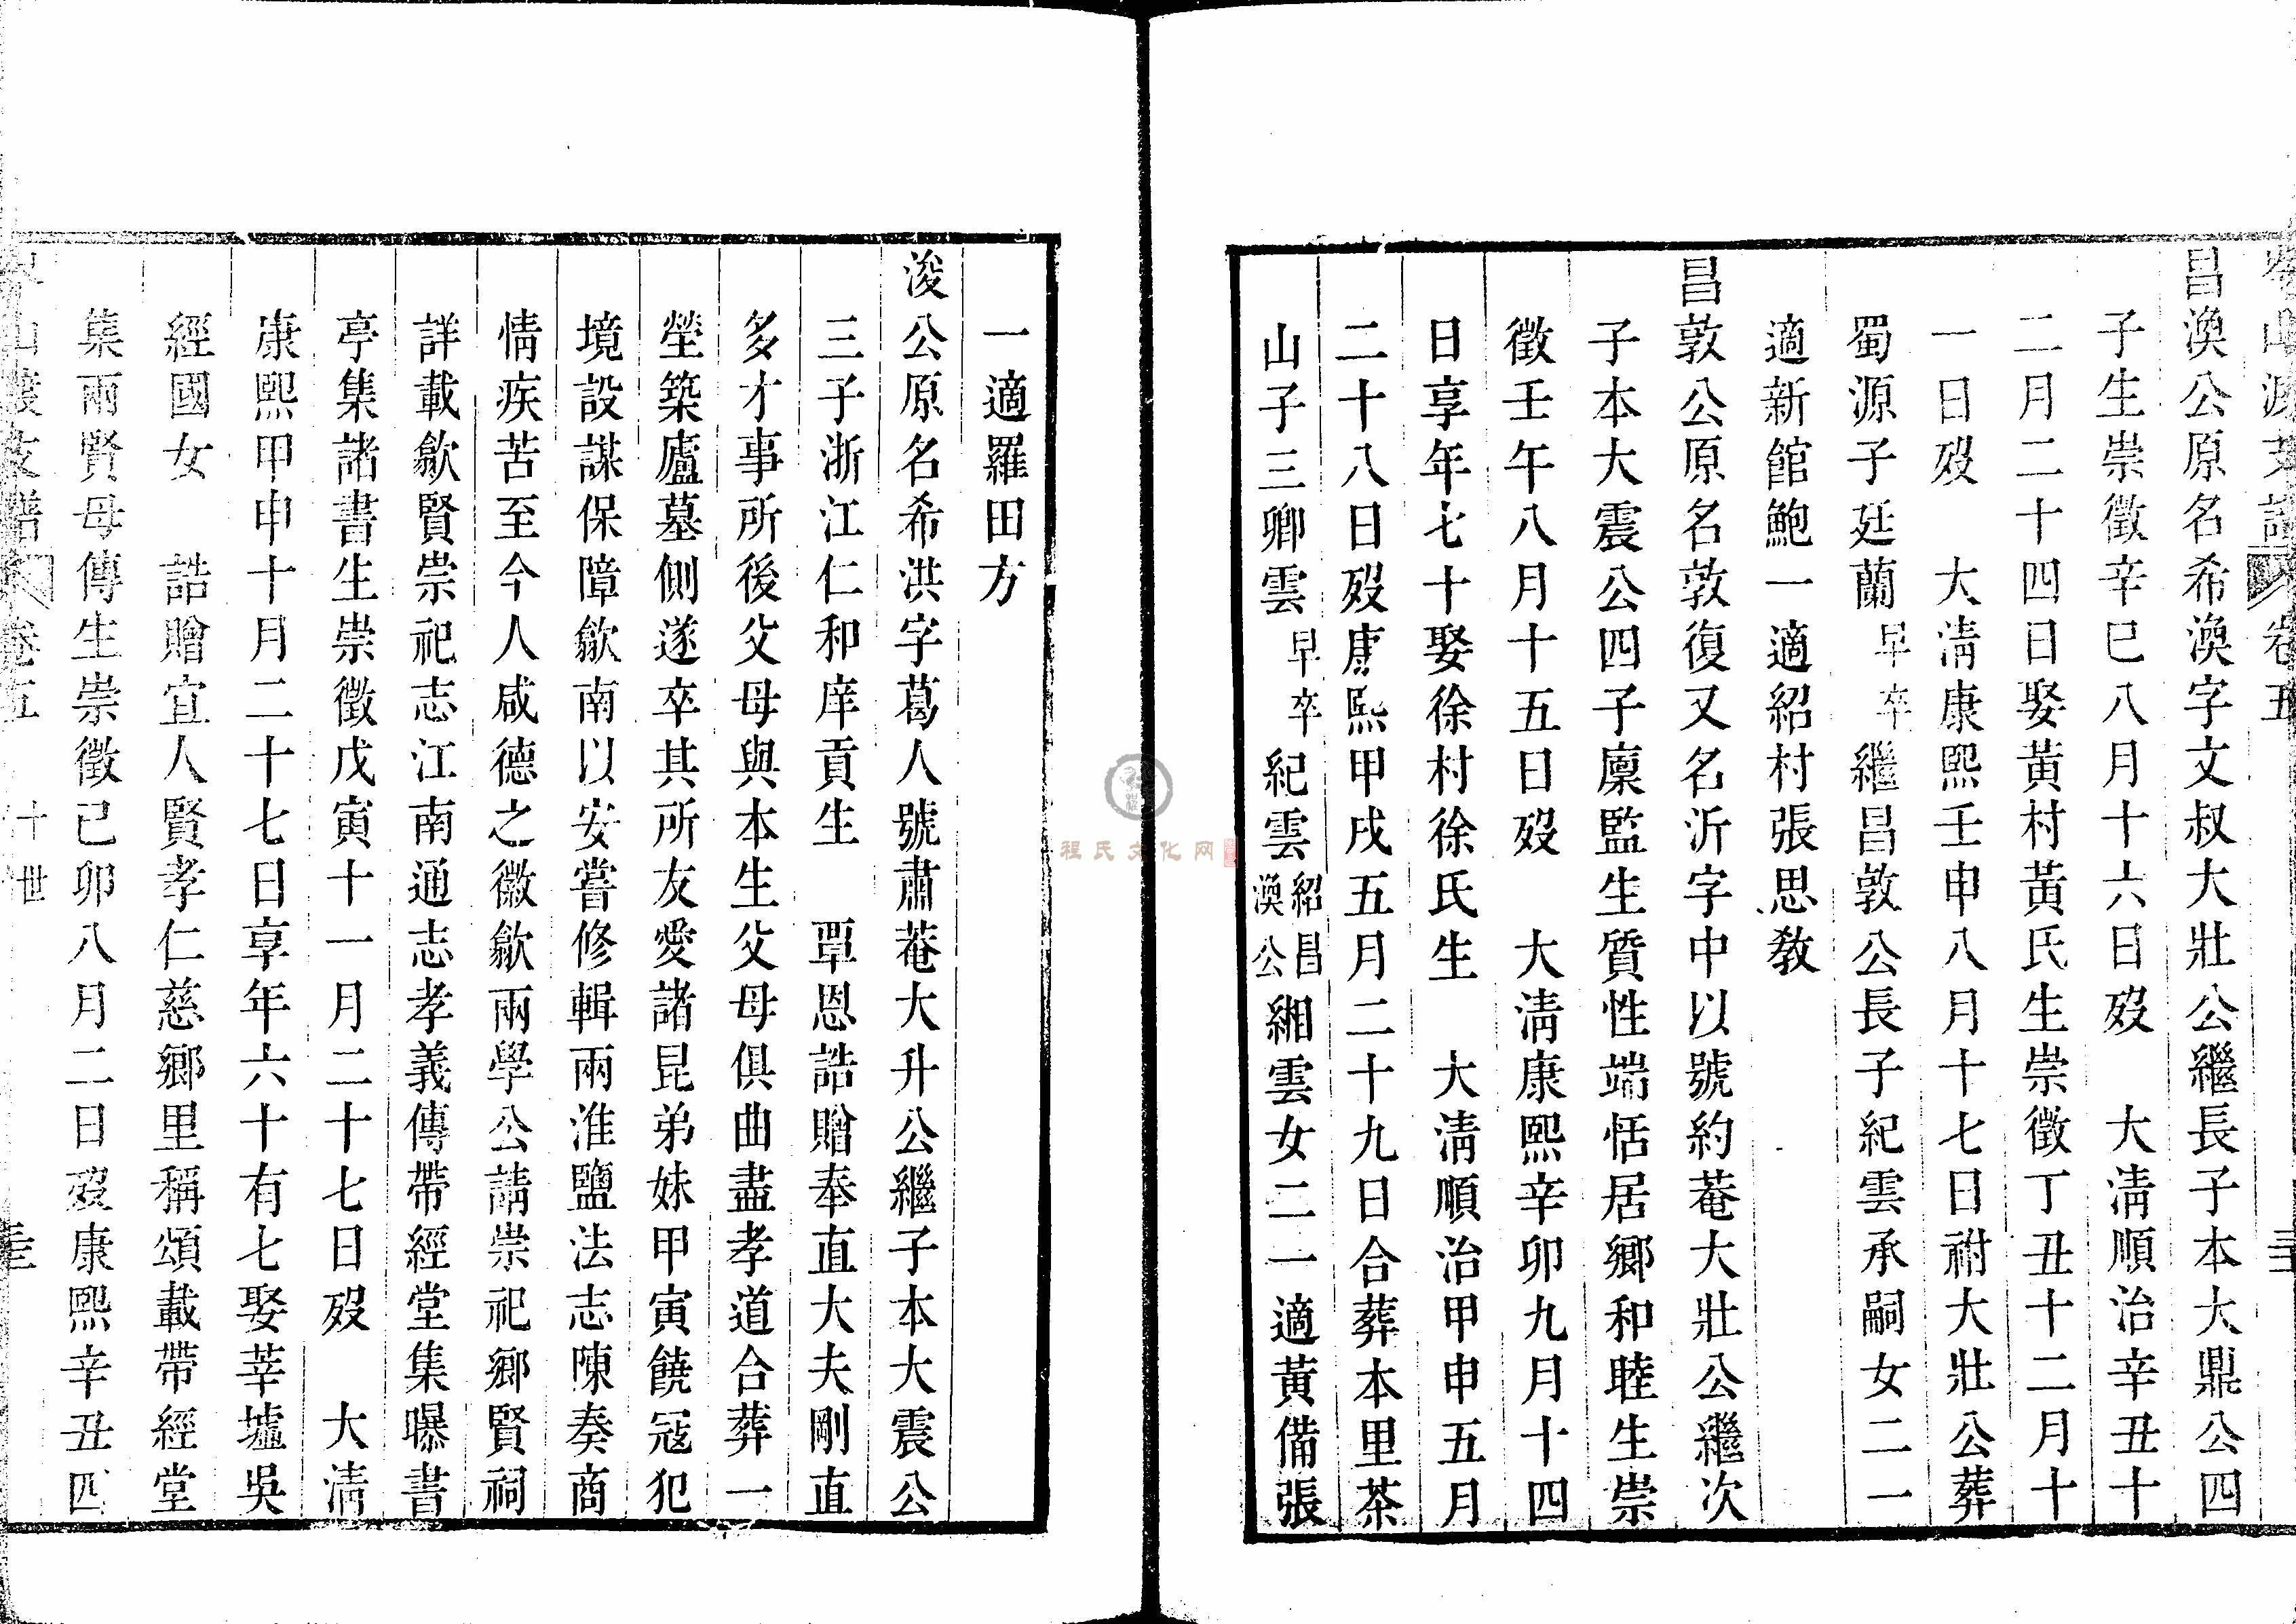 昌渙公原名希渙字文叔大壯公繼長子本大鼎公四
子生崇徵辛巳八月十六日歿　大淸順治辛丑十
二月二十四日娶黃村黃氏生崇徵丁丑十二月十
一日歿　大淸康熙壬申八月十七日祔大壯公葬
蜀源子廷蘭早卒繼昌敦公長子紀雲承嗣女二一
適新館鮑一適紹村張思敎
昌敦公原名敦復又名沂字中以號約菴大壯公繼次
子本大震公四子廩監生質性端恬居鄉和睦生崇
徵壬午八月十五日歿　大淸康熙辛卯九月十四
日享年七十娶徐村徐氏生　大淸順治甲申五月
二十八日歿康熙甲戌五月二十九日合葬本里茶
山子三卿雲早卒紀雲紹昌渙公緗雲女二一適黃備張
一適羅田方
浚公原名希洪字葛人號肅菴大升公繼子本大震公
三子浙江仁和庠貢生　覃恩誥贈奉直大夫剛直
多才事所後父母與本生父母俱曲盡孝道合葬一
塋築廬墓側遂卒其所友愛諸昆弟妹甲寅饒冦犯
境設謀保障歙南以安嘗修輯兩淮鹽法志陳奏商
情疾苦至今人咸德之徽歙兩學公請崇祀鄉賢祠
詳載歙賢崇祀志江南通志孝義傳帶經堂集曝書
亭集諸書生崇徵戊寅十一月二十七日歿　大淸
康熙甲申十月二十七日享年六十有七娶莘墟吳
經國女　誥贈宜人賢孝仁慈鄉里稱頌載帶經堂
集兩賢母傳生崇徵己卯八月二日歿康熙辛丑四
卷五　十世
程氏文化网